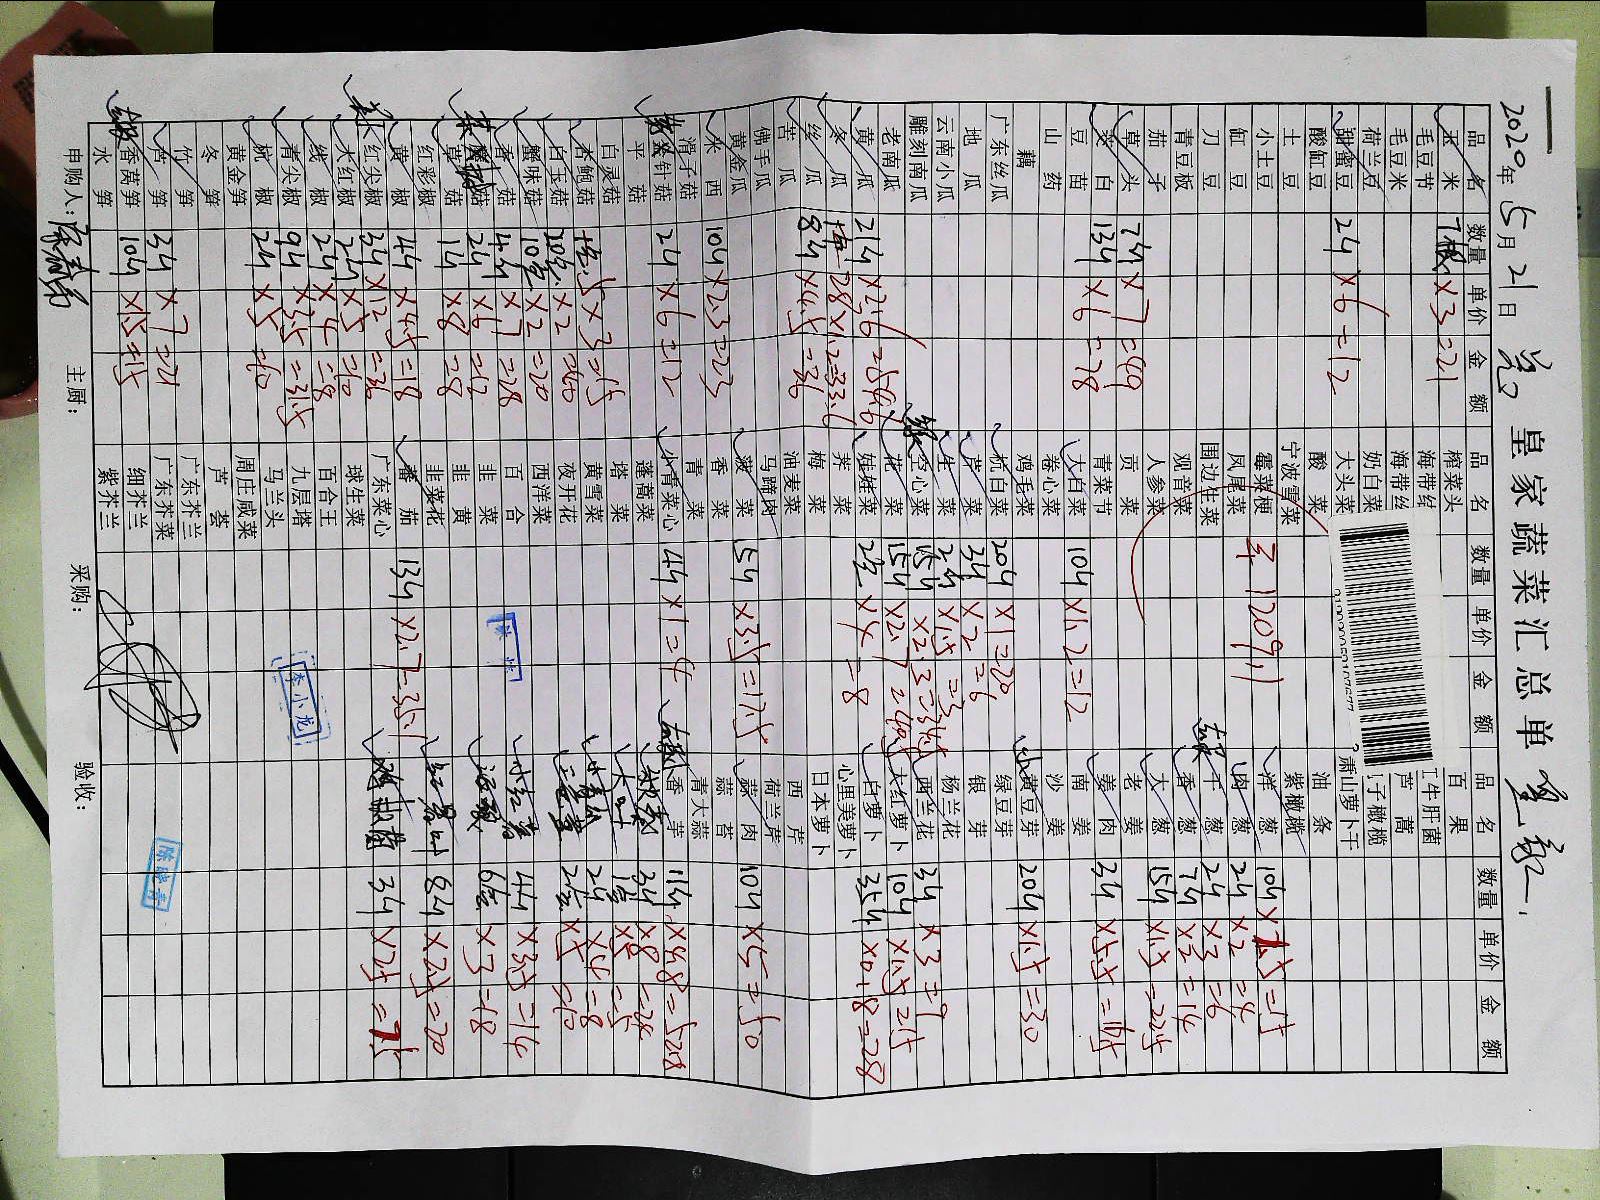 2020年5月21日 皇家蔬菜汇总单
品名 数量 单价 金额
玉米 7根×3=21
毛豆节
毛豆米
荷兰豆
甜蜜豆 2斤×6=12
酸缸豆
土豆
小土豆
缸豆
刀豆
青豆板
茄子
草头 7斤×7=49
茭白 13斤×6=78
豆苗
山药
藕
广东丝瓜
地瓜
云南小瓜
雕刻南瓜
老南瓜
黄瓜 21斤×2.6=54.6
冬瓜 28×1.2=33.6
丝瓜 8斤×4.5=36
苦瓜
佛手瓜
黄金瓜
米西 10斤×2.3=23
滑子菇
金针菇 2斤×6=12
平菇
白灵菇
杏鲍菇 ×3=15
白玉菇 20包×2=40
蟹味菇 10包×2=20
香菇 4斤×7=28
2斤×6=12
草菇 1斤×8=8
红彩椒
黄椒 4斤×4.5=18
红尖椒 3斤×12=36
大红椒 2斤×5=10
线椒 2斤×4=8
青尖椒 9斤×3.5=31.5
杭椒 2斤×5=10
黄金笋
冬笋
竹笋
芦笋 3斤×7=21
香莴笋 10斤×1.5=15
水笋
品名 数量 单价 金额
榨菜头
海带结
海带丝
奶白菜
大头菜
酸菜
宁波雪菜
霉菜梗 1209.1
凤尾菜
围边生菜
观音菜
人参菜
贡菜
青菜节
大白菜 10斤×1.2=12
卷心菜
鸡毛菜
杭白菜 20斤×1=20
芦菜 3斤×2=6
生菜 2斤×1.5=3
空心菜 15斤×2.3=34.5
花菜 15斤×2.7=40.5
娃娃菜 2包×4=8
荠菜
梅菜
油麦菜
马蹄树
菠菜 5斤×3.5=17.5
香菜
青菜
小青菜心 4斤×1=4
蓬蒿菜
塔菜
黄雪菜
夜开花
西洋菜
百合
韭菜
韭黄
韭菜花
番茄 13斤×2.7=35.1
广东菜心
球生菜
百合王
九层塔
马兰头
周庄咸菜
芦荟
广东芥兰
广东芥菜
细芥兰
紫芥兰
品名 数量 单价 金额
百果
牛肝菌
芦蒿
子橄榄
萧山萝卜干
油条
紫橄榄
洋葱 10斤×1.5=15
肉葱 2斤×2=4
干葱 2斤×3=6
香葱 7斤×2=14
大葱 15斤×1.5=22.5
老姜
姜肉 3斤×5.5=16.5
南姜
沙姜
黄豆芽 20斤×1.5=30
绿豆芽
银芽
杨兰花
西兰花 3斤×3=9
大红萝卜 10斤×1.5=15
白萝卜 35斤×0.8=28
心里美萝卜
日本萝卜
西芹
荷兰芹
蒜肉 10斤×5=50
蒜苔
青大蒜
香芋 11斤×4.8=52.8
3斤×8=24
大叶
2斤×4=8
2盒×5=10
小红薯 4斤×3.5=14
6盒×3=18
8斤×2.5=20
3斤×2.5=7.5
申购人:
主厨:
采购:
验收:
李小龙